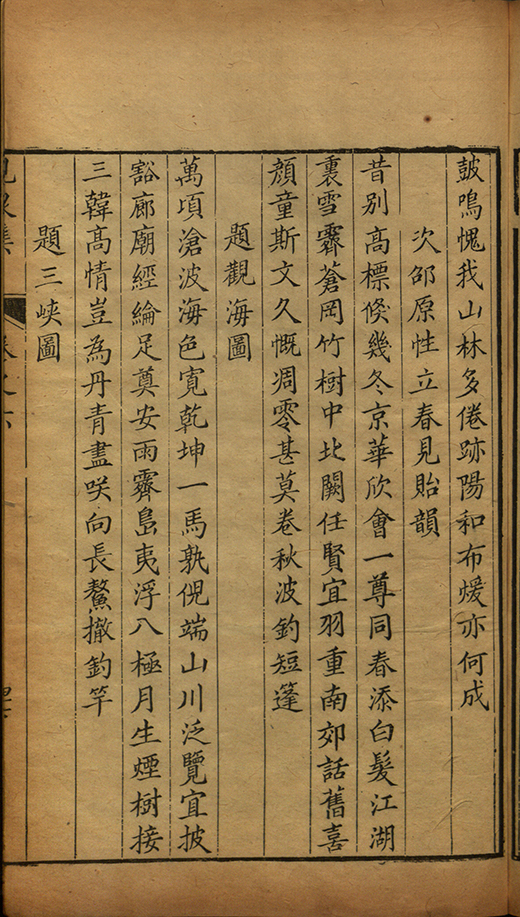 皷鳴愧我山林多倦跡陽和布煖亦何成
次邵原性立春見貽韻
昔別高標倐幾冬京華欣會一尊同春添白髮江湖
裏雪霽蒼岡竹樹中北闕任賢宜羽重南郊話舊喜
顔童斯文久慨凋零甚莫卷秋波釣短篷
題觀海圖
萬頃滄波海色寛乾坤一馬孰倪端山川泛覽宜披
豁廊廟經綸足奠安雨霽島夷浮八極月生煙樹接
三韓高情豈為丹青盡咲向長鰲撤釣竿
題三峽圖
集
卷之六